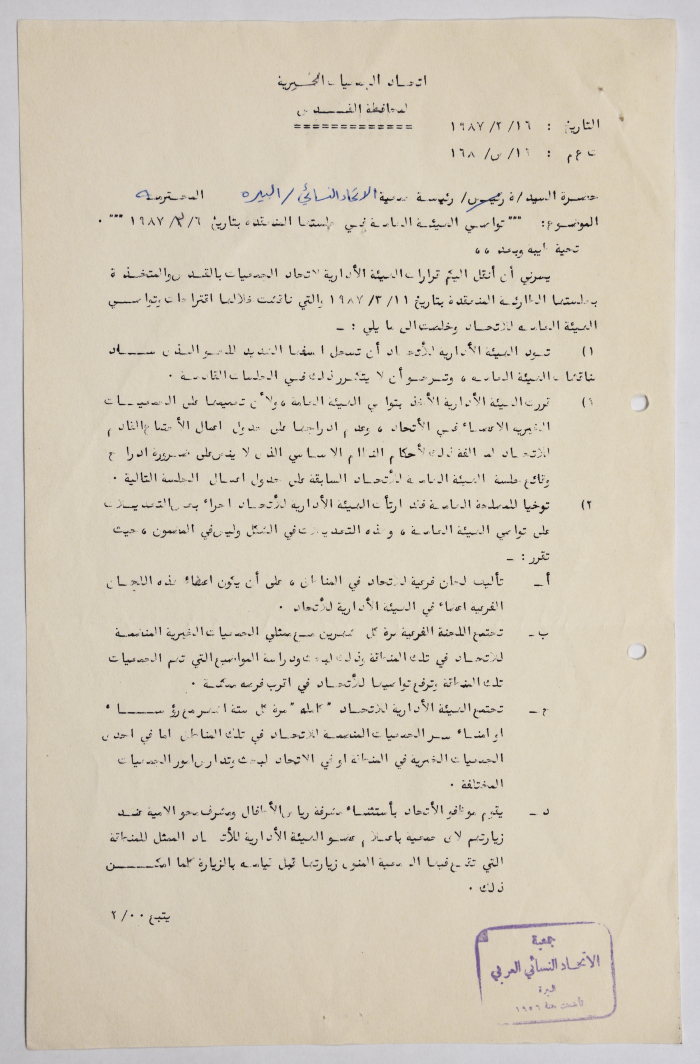 اتحاد الجمعيات الخيرية
لمحافظة القدس
============
التاريخ : ١٦/ ٣/ ١٩٨٧
١٦٨ /س/ ١٦ :
حضرة السيد/ة رئيس/ رئيسة جمعية الاتحاد النسائي/البيره المحترمه
الموضوع : """ تواصي الهيئة العامة في جلستها المنعقدة بتاريخ ٦/ ٣/ ١٩٨٧ """ .
تحية طيبه وبعد ،،
يسرني أن أنقل اليكم قرارات الهيئة الأدارية لاتحاد الجمعيات بالقدس والمتخذة
بجلستها الطارئة المنعقدة بتاريخ ١١/ ٣/ ١٩٨٧ والتي ناقشت خلالها اقتراحات وتواصي
الهيئة العامه للاتحاد وخلصت الى ما يلي : -
١) تود الهيئة الأدارية للأتحاد أن تسجل اسفها الشديد للجو الذي ساد
نقاشات الهيئة العامه ، وترجو أن لا يتكرر ذلك في الجلسات القادمة .
٢) قررت الهيئة الأدارية الأخذ بتواصي الهيئة العامة ، ولأن تعميمها على الجمعيات
الخيرية الاعضاء في الأتحاد ، وعدم ادراجها على جدول اعمال الأجتماع القادم
للاتحاد لمخالفة ذلك لأحكام النظام الاساسي الذي لا ينص على ضرورة ادراج
وقائع جلسة الهيئة العامة للأتحاد السابقة على جدول اعمال الجلسة التالية .
٣) توخيا للمصلحة العامة فقد ارتأت الهيئة الأدارية للأتحاد اجراء بعض التعديلات
على تواصي الهيئة العامة ، وهذه التعديلات في الشكل وليس في المضمون ، حيث
تقرر : -
أ - تأليف لجان فرعية للاتحاد في المناطق ، على أن يكون اعضاء هذه اللجان
الفرعيه اعضاء في الهيئة الأدارية للأتحاد .
ب - تجتمع اللجنة الفرعية مرة كل شهرين مع ممثلي الجمعيات الخيرية المنتسبة
للاتحاد في تلك المنطقة وذلك لبحث ودراسة المواضيع التي تهم الجمعيات
تلك المنطقة وترفع تواصيها للأتحاد في اقرب فرصه ممكنة .
ج - تجتمع الهيئة الأدارية للاتحاد "كامله" مرة كل ستة اشهر مع رؤساء
او امناء سر الجمعيات المنتسبة للاتحاد في تلك المناطق اما في احدى
الجمعيات الخيرية في المنطقة او في الاتحاد لبحث وتدارس امور الجمعيات
المختلفة .
د - يقوم موظفو الأتحاد بأستثناء مشرفة رياض الأطفال ومشرف محو الامية عند
زيارتهم لاي جمعية باعلام عضو الهيئة الأدارية للأتحاد الممثل للمنطقة
التي تقع فيها الجمعية المنوي زيارتها قبل قيامه بالزيارة كلما امكن
ذلك .
يتبع ٢/٠٠
جمعية
الاتحاد النسائي العربي
البيرة
تأسست سنة ١٩٥٦